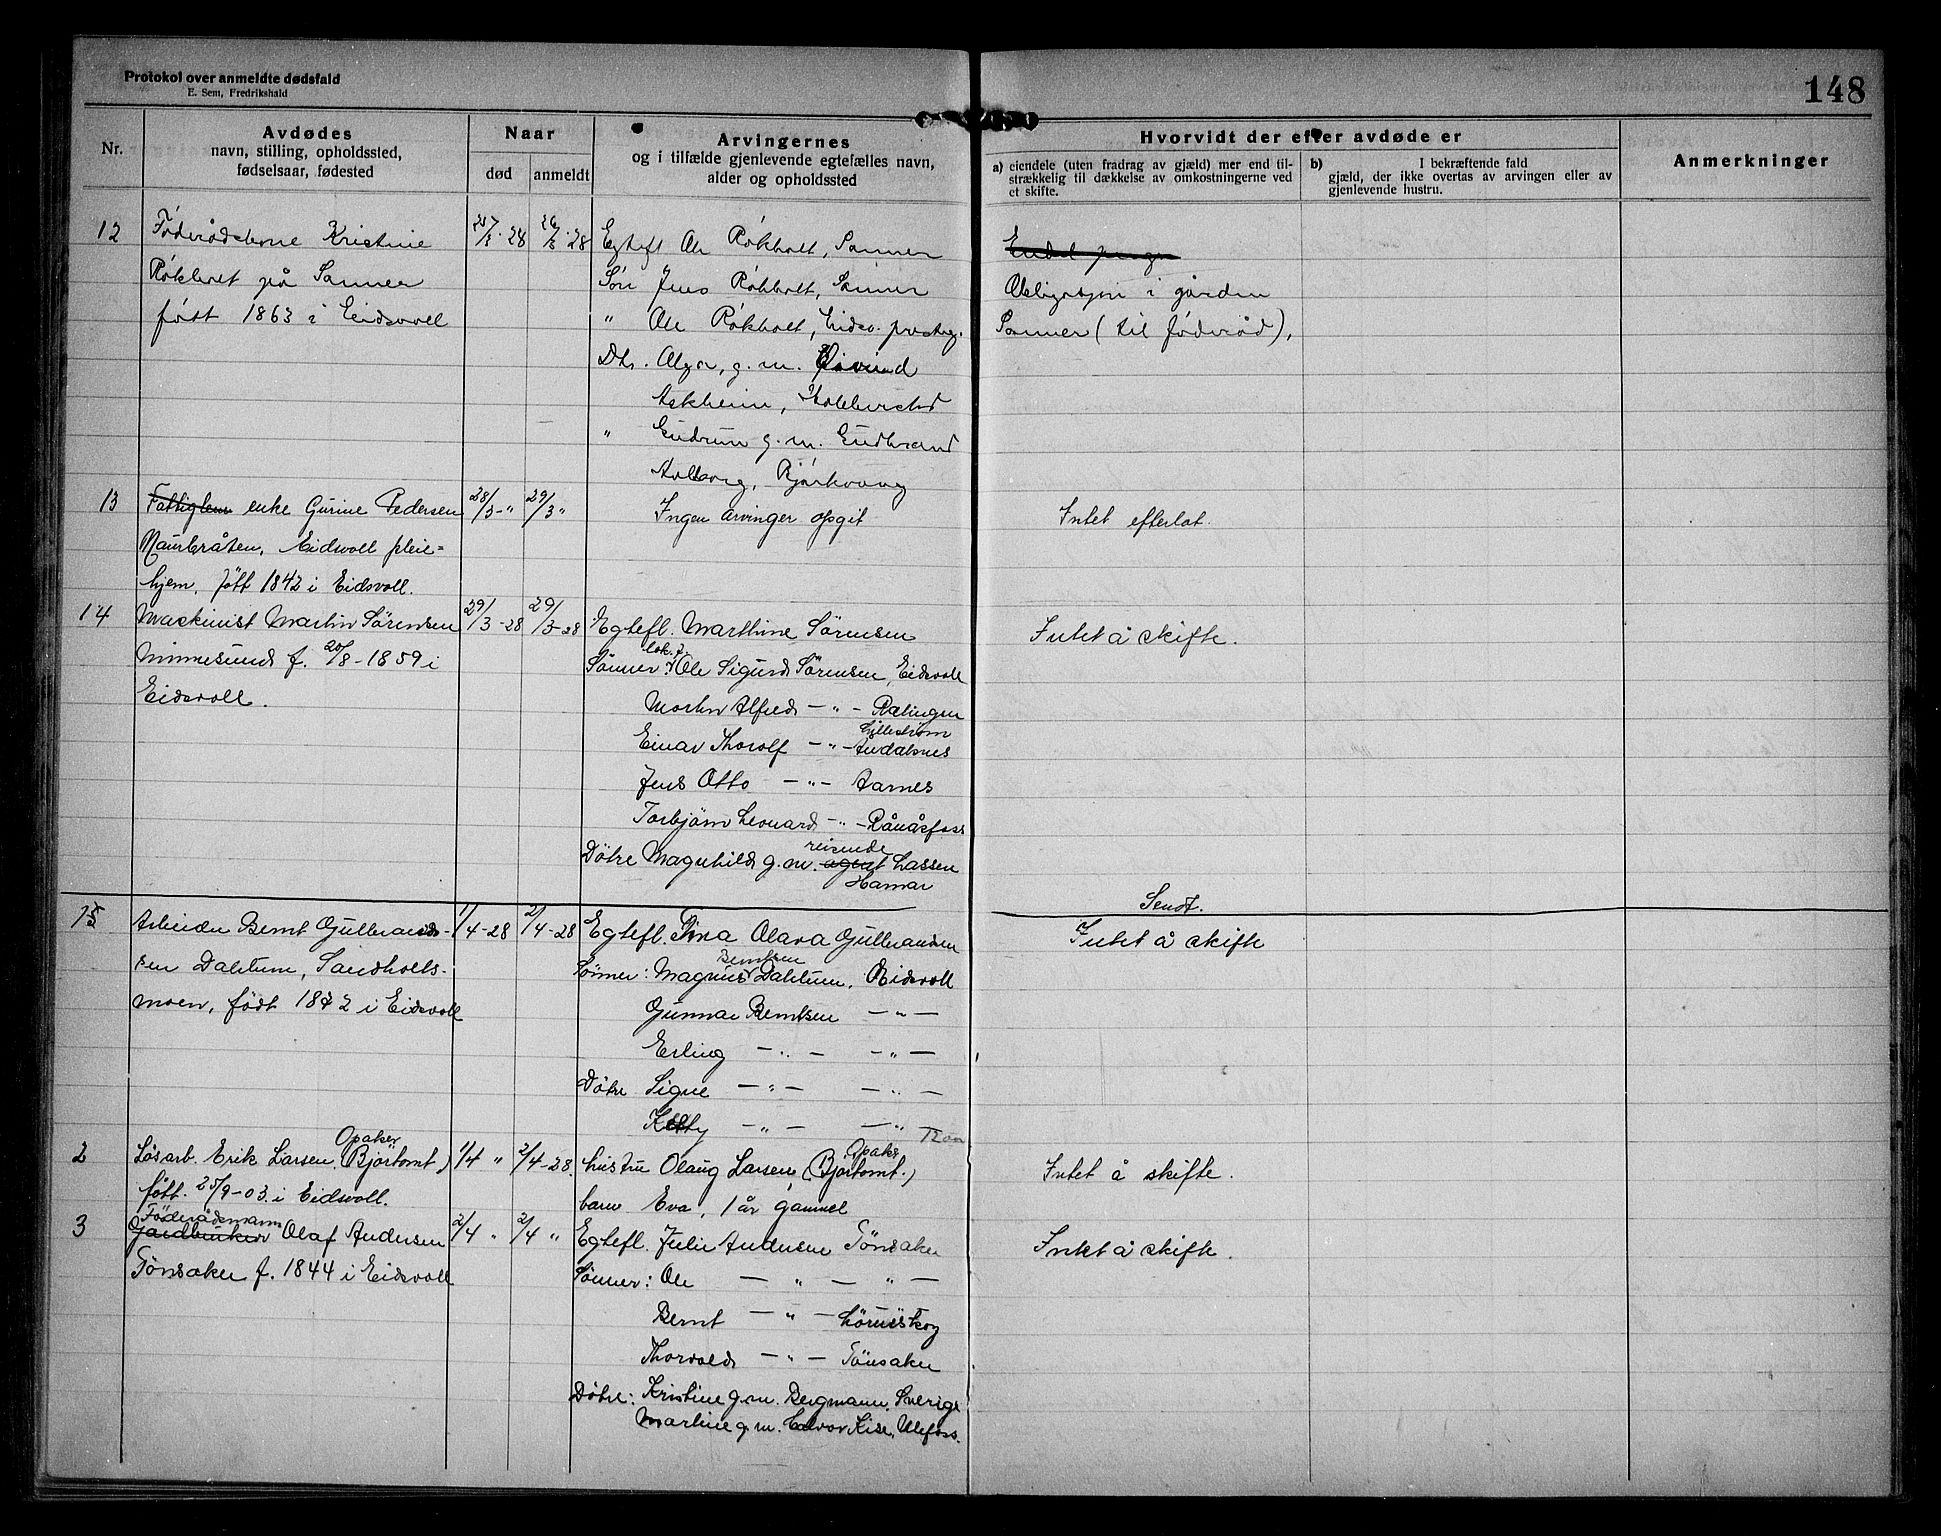 Protokol over anmeldte dødsfald
E. Sem, Fredrikshald
148
Nr.
Avdødes
navn, stilling, opholdssted,
fødselsaar, fødested
Naar
død
anmeldt
Arvingernes
og i tilfælde gjenlevende egtefælles navn,
alder og opholdssted
Hvorvidt der efter avdøde er
a) eiendele (uten fradrag av gjæld) mer end til-
strækkelig til dækkelse av omkostningerne ved
et skifte.
b) I bekræftende fald
gjæld, der ikke overtas av arvingen eller av
gjenlevende hustru.
Anmerkninger
12
Føderådskone Kristine
på Sanner
født 1863 i Eidsvoll
Egtef. Ole Røkholt, Sanner
Søn Jens Røkholt, Sanner
" Ole Røkholt, Eidsv. presteg.
Dtr. Olga, g. m. Øivind
Askheim,
" Gudrun g. m. Gudbrand
Aalborg, Bjørkvang
Obligasjon i gården
Sanner (til føderåd),
13
Fattiglem enke Gurine Pedersen
Maurbråten, Eidsvoll pleie-
hjem, født 1842 i Eidsvoll.
28/3 - "
29/3 "
Ingen arvinger opgit
Intet efterlat.
14
Maskinist Martin Sørensen
Minnesund f. 20/8-1859 i
Eidsvoll.
29/3-28
29/3-28
Egtefl. Marthine Sørensen
lok.f.
Sønner: Ole Sigurd Sørensen, Eidsvoll
Martin Alfred - " - Rælingen
Lillestrøm
Einar Thorolf - " - Åndalsnes
Jens Otto - " - Aarnes
Torbjørn Leonard - " - Rånåsfoss
reisende
Døtre Magnhild g. m. agent Lassen
Hamar
Intet å skifte.
Sendt.
15
Arbeider Bernt Gulbrand-
sen Dahlum, Sandholts-
moen, født 1872 i Eidsvoll
1/4-28
2/4-28
Egtefl. Tina Olava Gulbrandsen
Berntsen
Sønner: Magnus Dahlum, Eidsvoll
Gunnar Berntsen - " -
Erling - " - - " -
Døtre Signe - " - - " -
Ketty - " - - "
Intet å skifte
2
Opaker
Løsarb. Erik Larsen (Bjørtomt)
født 25/9-03 i Eidsvoll.
1/4 "
2/4-28.
Opaker
hustru Olaug Larsen (Bjørtomt.)
barn Eva, 1 år gammel
Intet å skifte.
3
Føderådsmann
Gårdbruker Olaf Andersen
Tønsaker f. 1844 i Eidsvoll
2/4 "
2/4 "
Egtefl. Julie Andersen Tønsaker
Sønner: Ole - " - " -
Bernt - " - Lørenskog
Thorvald - " - Tønsaker
Døtre: Kristine g. m. Bergmann, Sverige
Martine g. m. Halvor Kise, Ulefoss.
Intet å skifte.